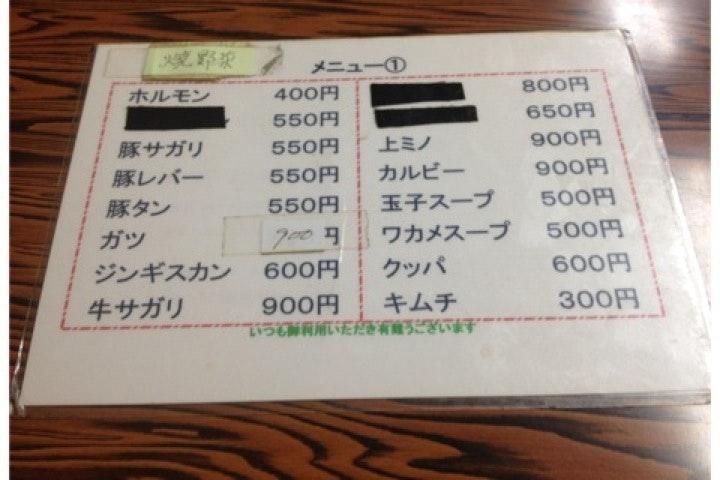 焼野菜
メニュー①
ホルモン 400円
550円
豚サガリ 550円
豚レバー 550円
豚タン 550円
ガツ 900円
ジンギスカン 600円
牛サガリ 900円
800円
650円
上ミノ 900円
カルビー 900円
玉子スープ 500円
ワカメスープ 500円
クッパ 600円
キムチ 300円
いつも御利用いただき有難うございます